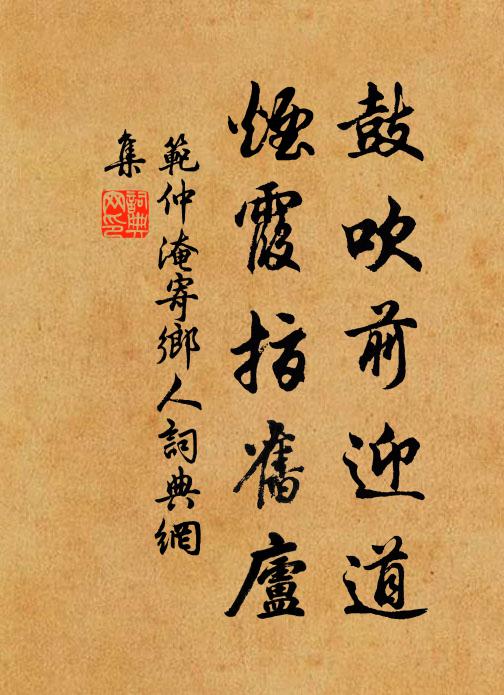 鼓吹前迎道
煙霞指舊廬
範仲淹寄鄉人詞典網
集
詞典网印